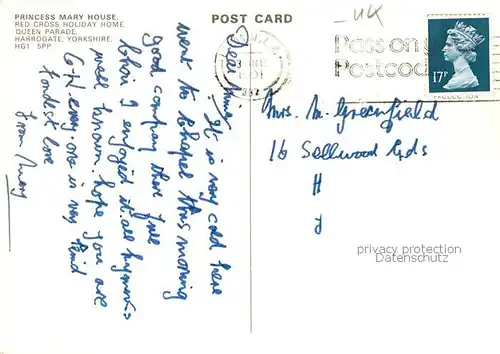 PRINCESS MARY HOUSE,
RED CROSS HOLIDAY HOME,
QUEEN PARADE,
HARROGATE, YORKSHIRE.
HG1 5PP
POST CARD
UK
Pass on
Postcod
17P
Dear
It is very cold here
went to Chapel this morning
good company there full
Choir I enjoyed it. all hymns
well known. hope you are
O-K every one is very kind
fondest love
from Mary
Mrs. M. Greenfield
16 Sellwood Gds
H
privacy protection
Datenschutz